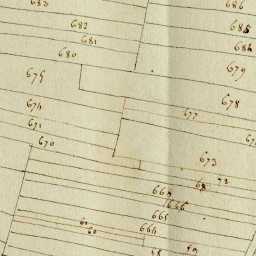 683
686
682
685
681
684
680
679
675
678
674
677
671
670
673
72
669
666
665
61
60
664